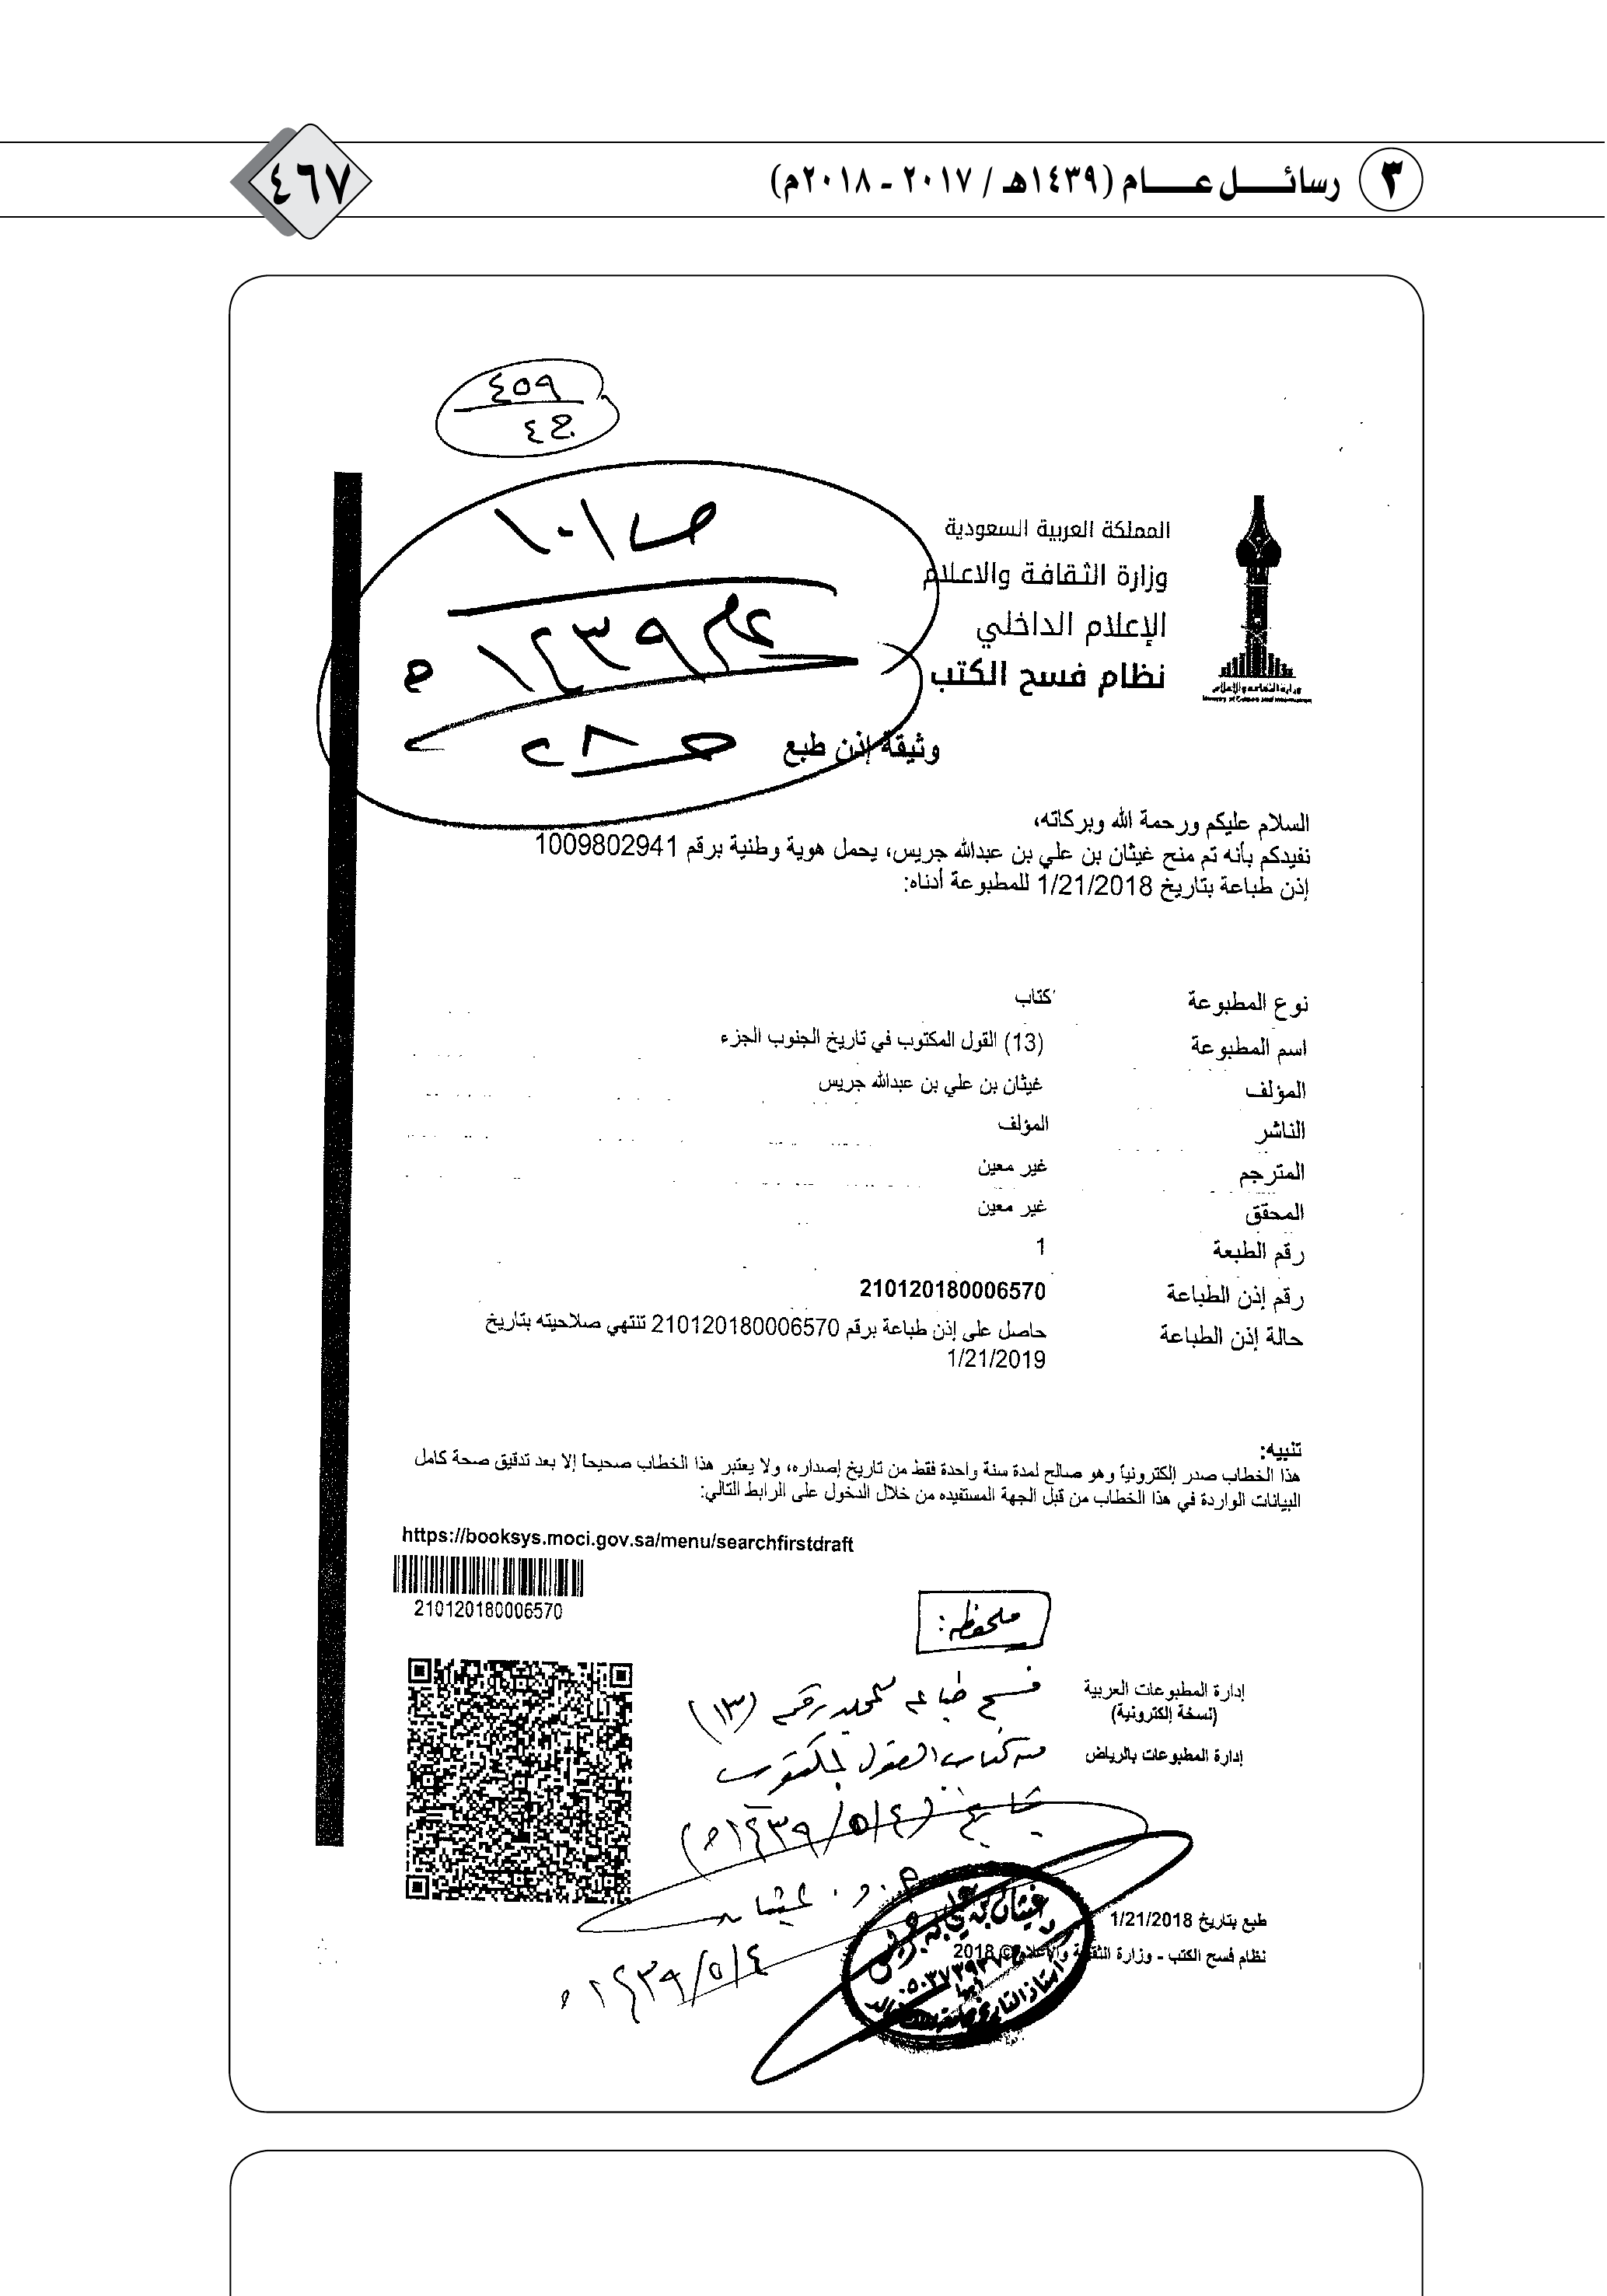 ٣ رسائل عام (١٤٣٩هـ / ٢٠١٧ - ٢٠١٨م)
٤٦٧
٤٥٩
ج٤
ص١٠١
عام ١٤٣٩ه
المملكة العربية السعودية
وزارة الثقافة والاعلام
الإعلام الداخلي
نظام فسح الكتب
وزارة الثقافة والإعلام
Ministry of Culture and Information
وثيقة إذن طبع
السلام عليكم ورحمة الله وبركاته،
نفيدكم بأنه تم منح غيثان بن علي بن عبدالله جريس، يحمل هوية وطنية برقم 1009802941
إذن طباعة بتاريخ 1/21/2018 للمطبوعة أدناه:
نوع المطبوعة كتاب
اسم المطبوعة (13) القول المكتوب في تاريخ الجنوب الجزء
المؤلف غيثان بن علي بن عبدالله جريس
الناشر المؤلف
المترجم غير معين
المحقق غير معين
رقم الطبعة 1
رقم إذن الطباعة 210120180006570
حالة إذن الطباعة حاصل على إذن طباعة برقم 210120180006570 تنتهي صلاحيته بتاريخ
1/21/2019
تنبيه:
هذا الخطاب صدر إلكترونياً وهو صالح لمدة سنة واحدة فقط من تاريخ إصداره، ولا يعتبر هذا الخطاب صحيحاً إلا بعد تدقيق صحة كامل
البيانات الواردة في هذا الخطاب من قبل الجهة المستفيده من خلال الدخول على الرابط التالي:
https://booksys.moci.gov.sa/menu/searchfirstdraft
210120180006570
ملحوظة:
إدارة المطبوعات العربية
(نسخة إلكترونية)
إدارة المطبوعات بالرياض
فسح طباعة المجلد رقم (١٣)
من كتاب القول المكتوب
بتاريخ (١٤٣٩/٥/٤ه)
غيثان
١٤٣٩/٥/٤ه
غيثان بن علي بن جريس
أبها
طبع بتاريخ 1/21/2018
نظام فسح الكتب - وزارة الثقافة والإعلام © 2018